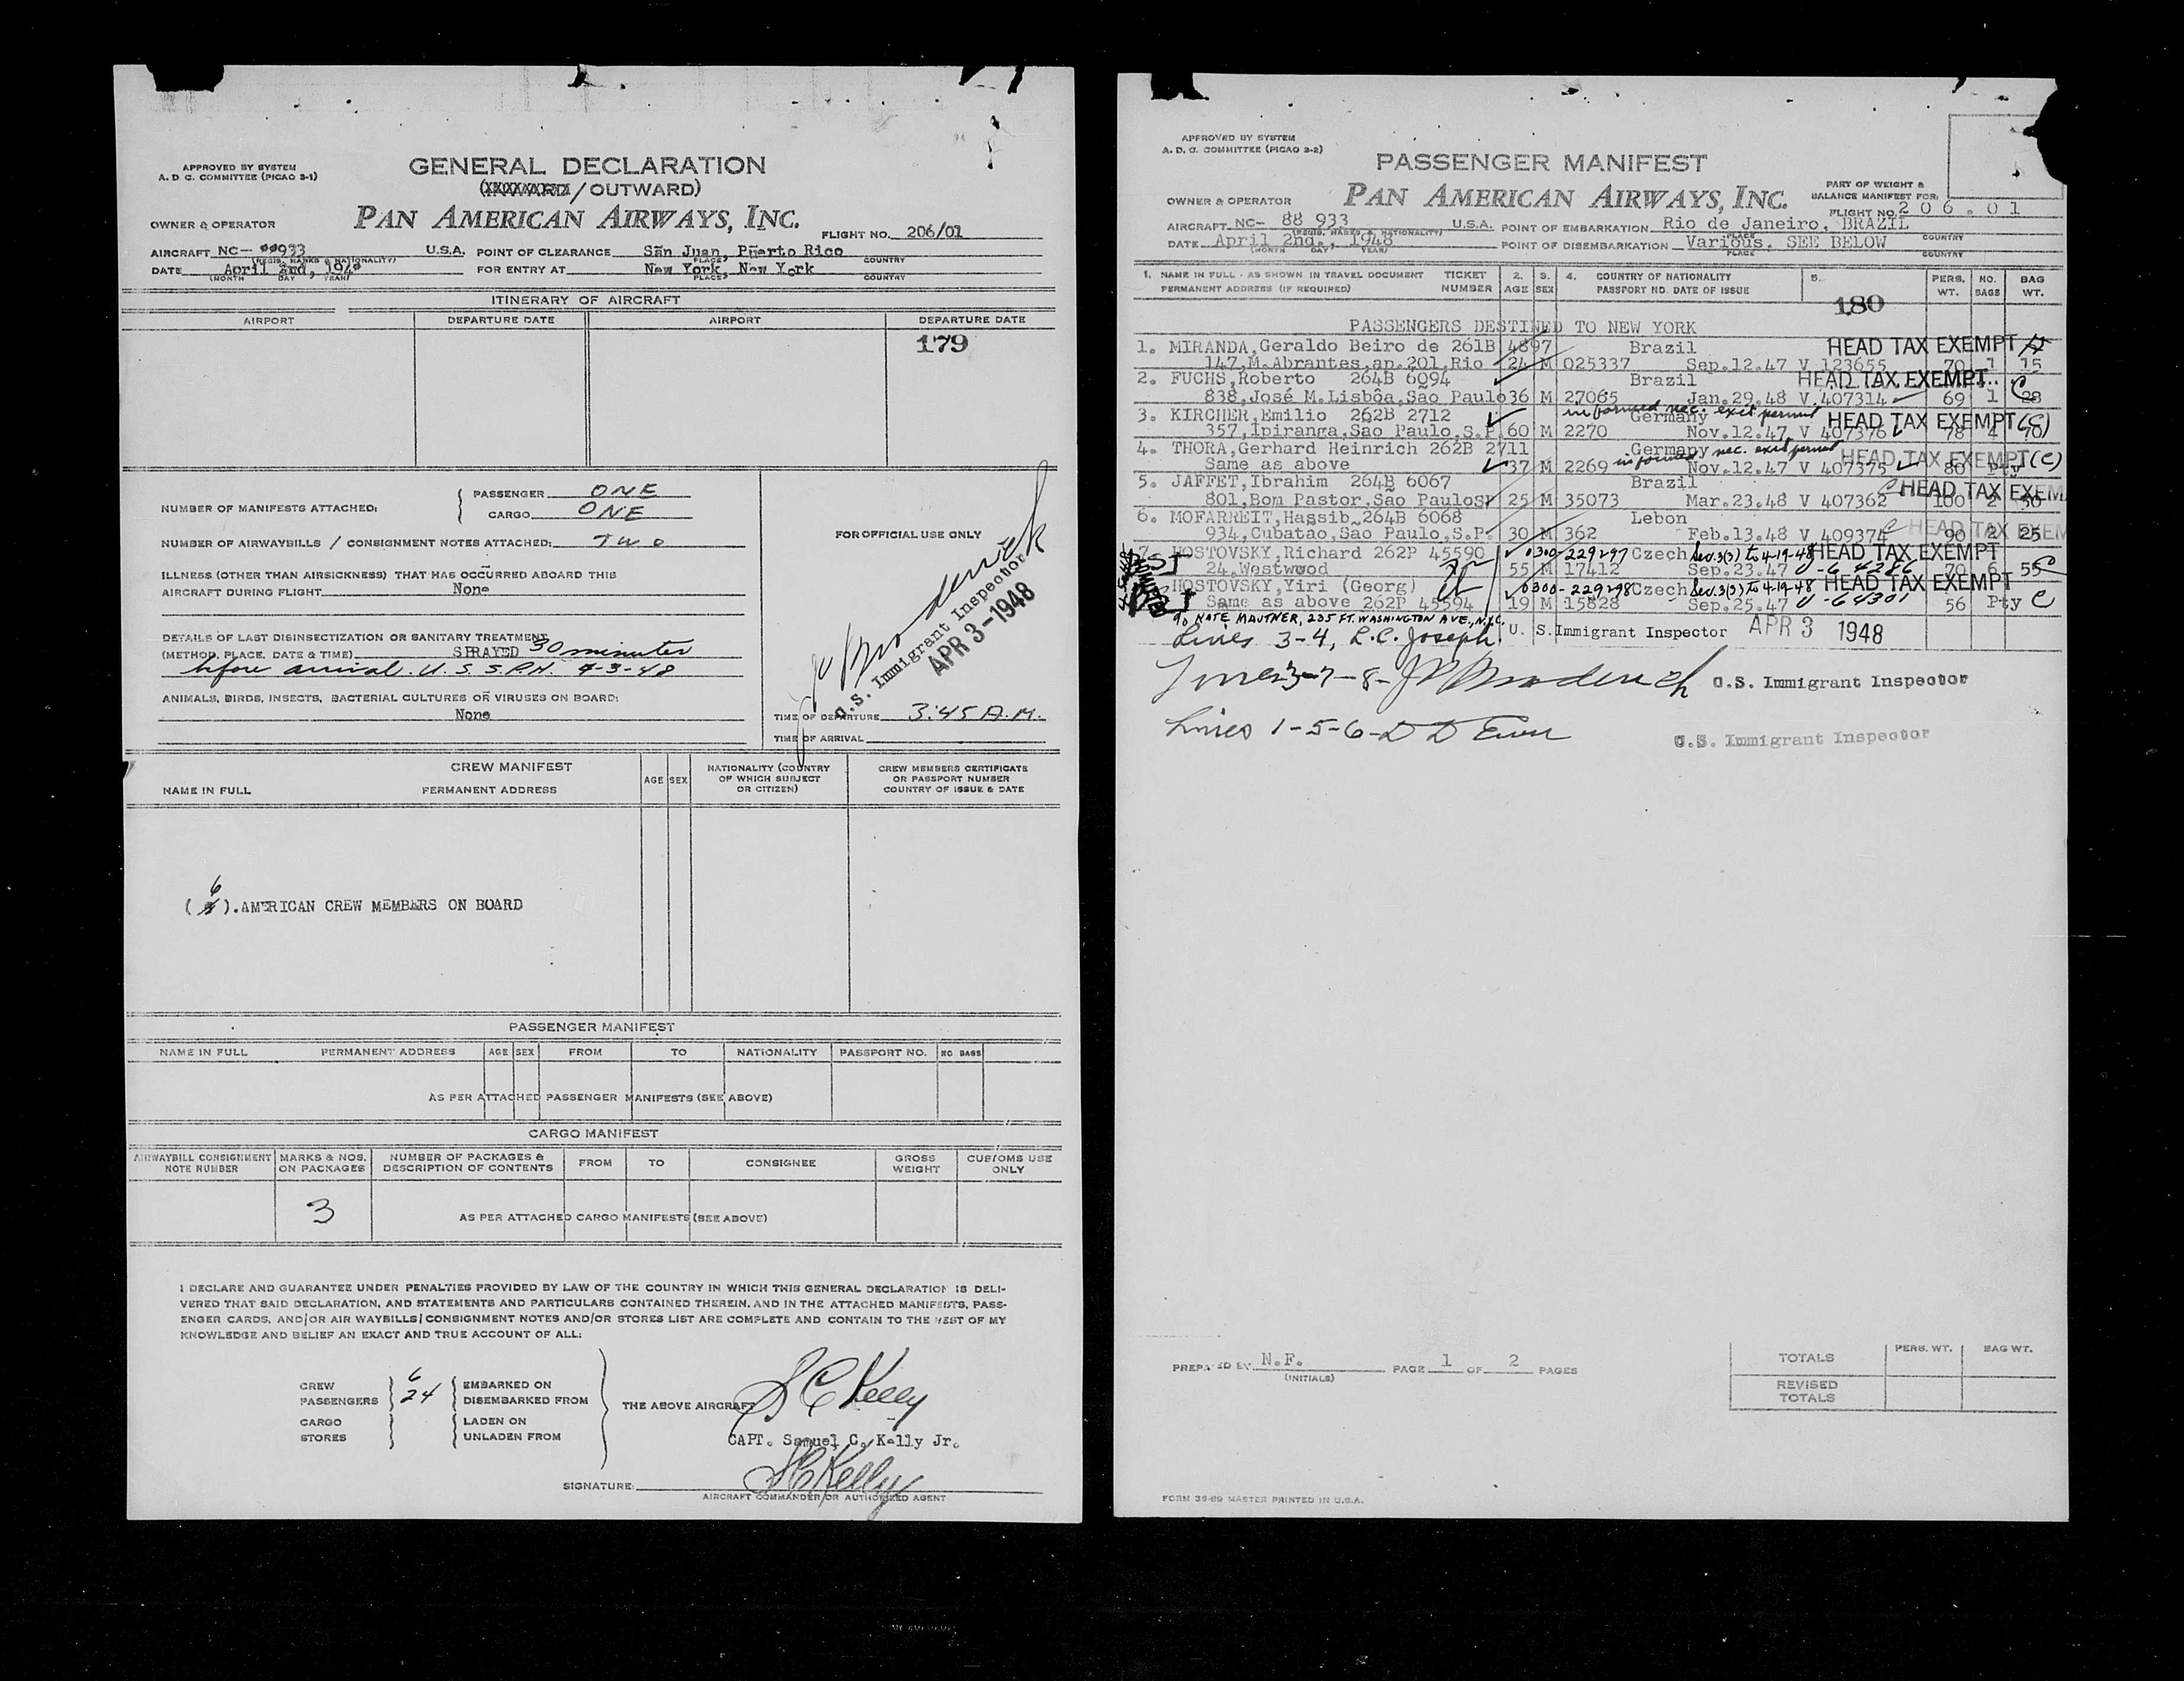 APPROVED BY SYSTEM
A. D C. COMMITTEE (PICAO 3-1)
GENERAL DECLARATION
/ OUTWARD)
OWNER & OPERATOR
PAN AMERICAN AIRWAYS, INC.
FLIGHT NO. 206/01
AIRCRAFT NC- 933 U.S.A. POINT OF CLEARANCE San Juan, Puerto Rico
(REGIS. MARKS & NATIONALITY) PLACE COUNTRY
DATE April 2nd, 194 FOR ENTRY AT New York, New York
(MONTH DAY YEAR) PLACE COUNTRY
ITINERARY OF AIRCRAFT
AIRPORT DEPARTURE DATE AIRPORT DEPARTURE DATE
179
NUMBER OF MANIFESTS ATTACHED:
PASSENGER ONE
CARGO ONE
NUMBER OF AIRWAYBILLS / CONSIGNMENT NOTES ATTACHED: TWO
ILLNESS (OTHER THAN AIRSICKNESS) THAT HAS OCCURRED ABOARD THIS
AIRCRAFT DURING FLIGHT None
DETAILS OF LAST DISINSECTIZATION OR SANITARY TREATMENT
(METHOD, PLACE, DATE & TIME) SPRAYED 30 minutes
before arrival. U.S.S.P.H. 4-3-48
ANIMALS, BIRDS, INSECTS, BACTERIAL CULTURES OR VIRUSES ON BOARD:
None
FOR OFFICIAL USE ONLY
U.S. Immigrant Inspector
APR 3-1948
TIME OF DEPARTURE 3:45 A.M.
TIME OF ARRIVAL
CREW MANIFEST
NAME IN FULL PERMANENT ADDRESS
AGE SEX
NATIONALITY (COUNTRY
OF WHICH SUBJECT
OR CITIZEN)
CREW MEMBERS CERTIFICATE
OR PASSPORT NUMBER
COUNTRY OF ISSUE & DATE
6
( ).AMERICAN CREW MEMBERS ON BOARD
PASSENGER MANIFEST
NAME IN FULL PERMANENT ADDRESS AGE SEX FROM TO NATIONALITY PASSPORT NO. NO BAGS
AS PER ATTACHED PASSENGER MANIFESTS (SEE ABOVE)
CARGO MANIFEST
AIRWAYBILL CONSIGNMENT
NOTE NUMBER
MARKS & NOS.
ON PACKAGES
NUMBER OF PACKAGES &
DESCRIPTION OF CONTENTS
FROM TO CONSIGNEE
GROSS
WEIGHT
CUSTOMS USE
ONLY
3
AS PER ATTACHED CARGO MANIFESTS (SEE ABOVE)
I DECLARE AND GUARANTEE UNDER PENALTIES PROVIDED BY LAW OF THE COUNTRY IN WHICH THIS GENERAL DECLARATION IS DELI-
VERED THAT SAID DECLARATION, AND STATEMENTS AND PARTICULARS CONTAINED THEREIN, AND IN THE ATTACHED MANIFESTS, PASS-
ENGER CARDS, AND/OR AIR WAYBILLS/CONSIGNMENT NOTES AND/OR STORES LIST ARE COMPLETE AND CONTAIN TO THE BEST OF MY
KNOWLEDGE AND BELIEF AN EXACT AND TRUE ACCOUNT OF ALL:
CREW 6 EMBARKED ON
PASSENGERS 24 DISEMBARKED FROM
CARGO LADEN ON
STORES UNLADEN FROM
THE ABOVE AIRCRAFT
S C Kelly
CAPT. Samuel C. Kelly Jr.
SIGNATURE: S C Kelly
AIRCRAFT COMMANDER/OR AUTHORIZED AGENT
APPROVED BY SYSTEM
A. D. C. COMMITTEE (PICAO 3-2)
PASSENGER MANIFEST
OWNER & OPERATOR
PAN AMERICAN AIRWAYS, INC.
PART OF WEIGHT &
BALANCE MANIFEST FOR:
FLIGHT NO. 206.01
AIRCRAFT NC- 88 933 U.S.A. POINT OF EMBARKATION Rio de Janeiro, BRAZIL
(REGIS. MARKS & NATIONALITY) PLACE COUNTRY
DATE April 2nd., 1948 POINT OF DISEMBARKATION Various. SEE BELOW
(MONTH DAY YEAR) PLACE COUNTRY
1. NAME IN FULL - AS SHOWN IN TRAVEL DOCUMENT TICKET 2. 3. 4. COUNTRY OF NATIONALITY 5. PERS. NO. BAG
PERMANENT ADDRESS (IF REQUIRED) NUMBER AGE SEX PASSPORT NO. DATE OF ISSUE WT. BAGS WT.
180
PASSENGERS DESTINED TO NEW YORK
1. MIRANDA,Geraldo Beiro de 261B 4897 Brazil HEAD TAX EXEMPT
147,M.Abrantes,ap.201,Rio 24 M 025337 Sep.12.47 V 123655 70 1 15
2. FUCHS,Roberto 264B 6094 Brazil HEAD TAX EXEMPT C
838,José M.Lisbôa,São Paulo 36 M 27065 Jan.29.48 V 407314 69 1 28
informed nec. exit permit
3. KIRCHER,Emilio 262B 2712 Germany HEAD TAX EXEMPT (C)
357,Ipiranga,São Paulo,S.P. 60 M 2270 Nov.12.47 V 407376 78 4 70
4. THORA,Gerhard Heinrich 262B 2711 Germany nec. exit permit HEAD TAX EXEMPT (C)
Same as above 37 M 2269 informed Nov.12.47 V 407375 80 Pty
5. JAFFET,Ibrahim 264B 6067 Brazil HEAD TAX EXEM
801,Bom Pastor,São Paulo 25 M 35073 Mar.23.48 V 407362 100 2 50
6. MOFARREIT,Hassib 264B 6068 Lebon HEAD TAX EXEM
934,Cubatao,São Paulo,S.P. 30 M 362 Feb.13.48 V 409374 90 2 25
7. HOSTOVSKY,Richard 262P 45590 0300-229297 Czech Sec.3(3) to 4-19-48 HEAD TAX EXEMPT
24,Westwood 55 M 17412 Sep.23.47 V-64286 70 6 55
HOSTOVSKY,Yiri (Georg) 0300-229298 Czech Sec.3(3) to 4-19-48 HEAD TAX EXEMPT
Same as above 262P 45594 19 M 15828 Sep.25.47 V-64301 56 Pty C
MAUTNER, 235 FT. WASHINGTON AVE., N.Y.C.
Lines 3-4, L.C. Joseph U. S. Immigrant Inspector APR 3 1948
7-8- U.S. Immigrant Inspector
Lines 1-5-6-
U.S. Immigrant Inspector
PREPARED BY N.F. PAGE 1 OF 2 PAGES
(INITIALS)
TOTALS PERS. WT. BAG WT.
REVISED
TOTALS
FORM 36-69 MASTER PRINTED IN U.S.A.